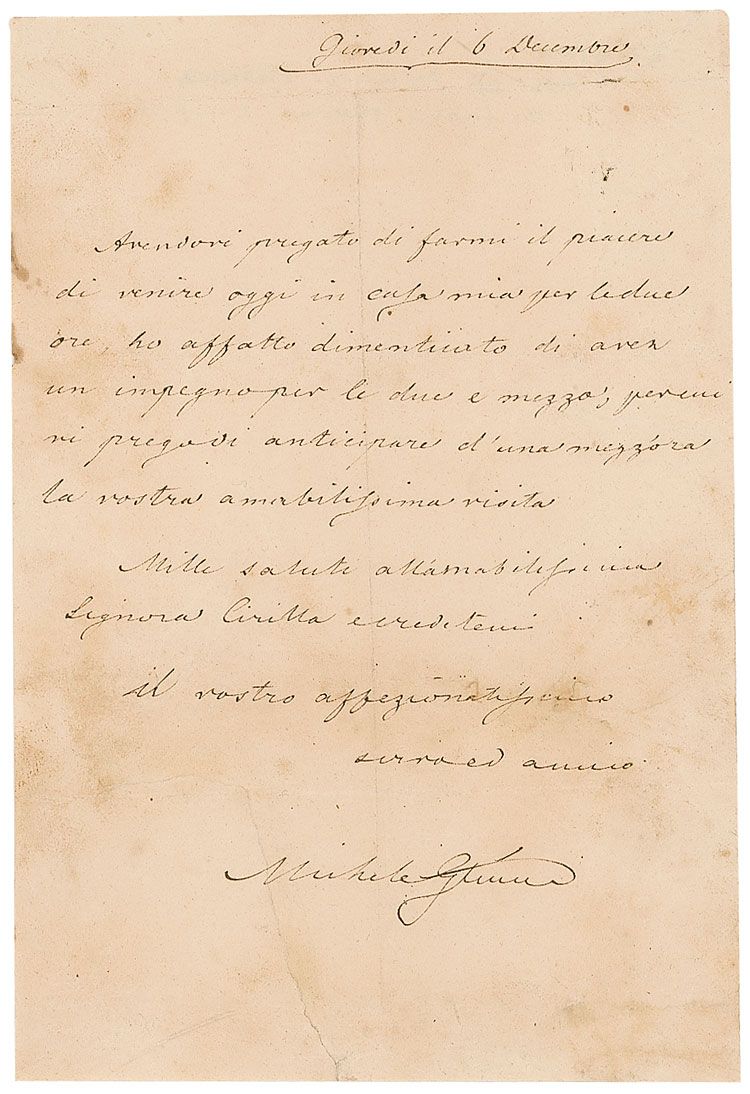 Giovedi il 6 Decembre
Avendovi pregato di farmi il piacere
di venire oggi in casa mia per le due
ore, ho affatto dimenticato di aver
un impegno per le due e mezzo, percui
vi prego di anticipare d'una mezz'ora
la vostra amabilissima visita
Mille saluti all'amabilissima
Signora Ciritta e credetemi
il vostro affezionatissimo
servo ed amico
Michele